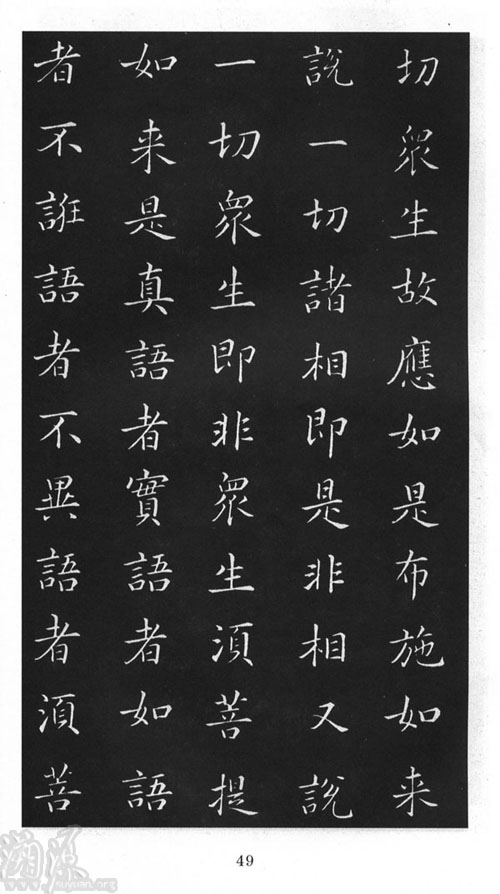 切眾生故應如是布施如来
說一切諸相即是非相又說
一切眾生即非眾生須菩提
如来是真語者實語者如語
者不誑語者不異語者須菩
49